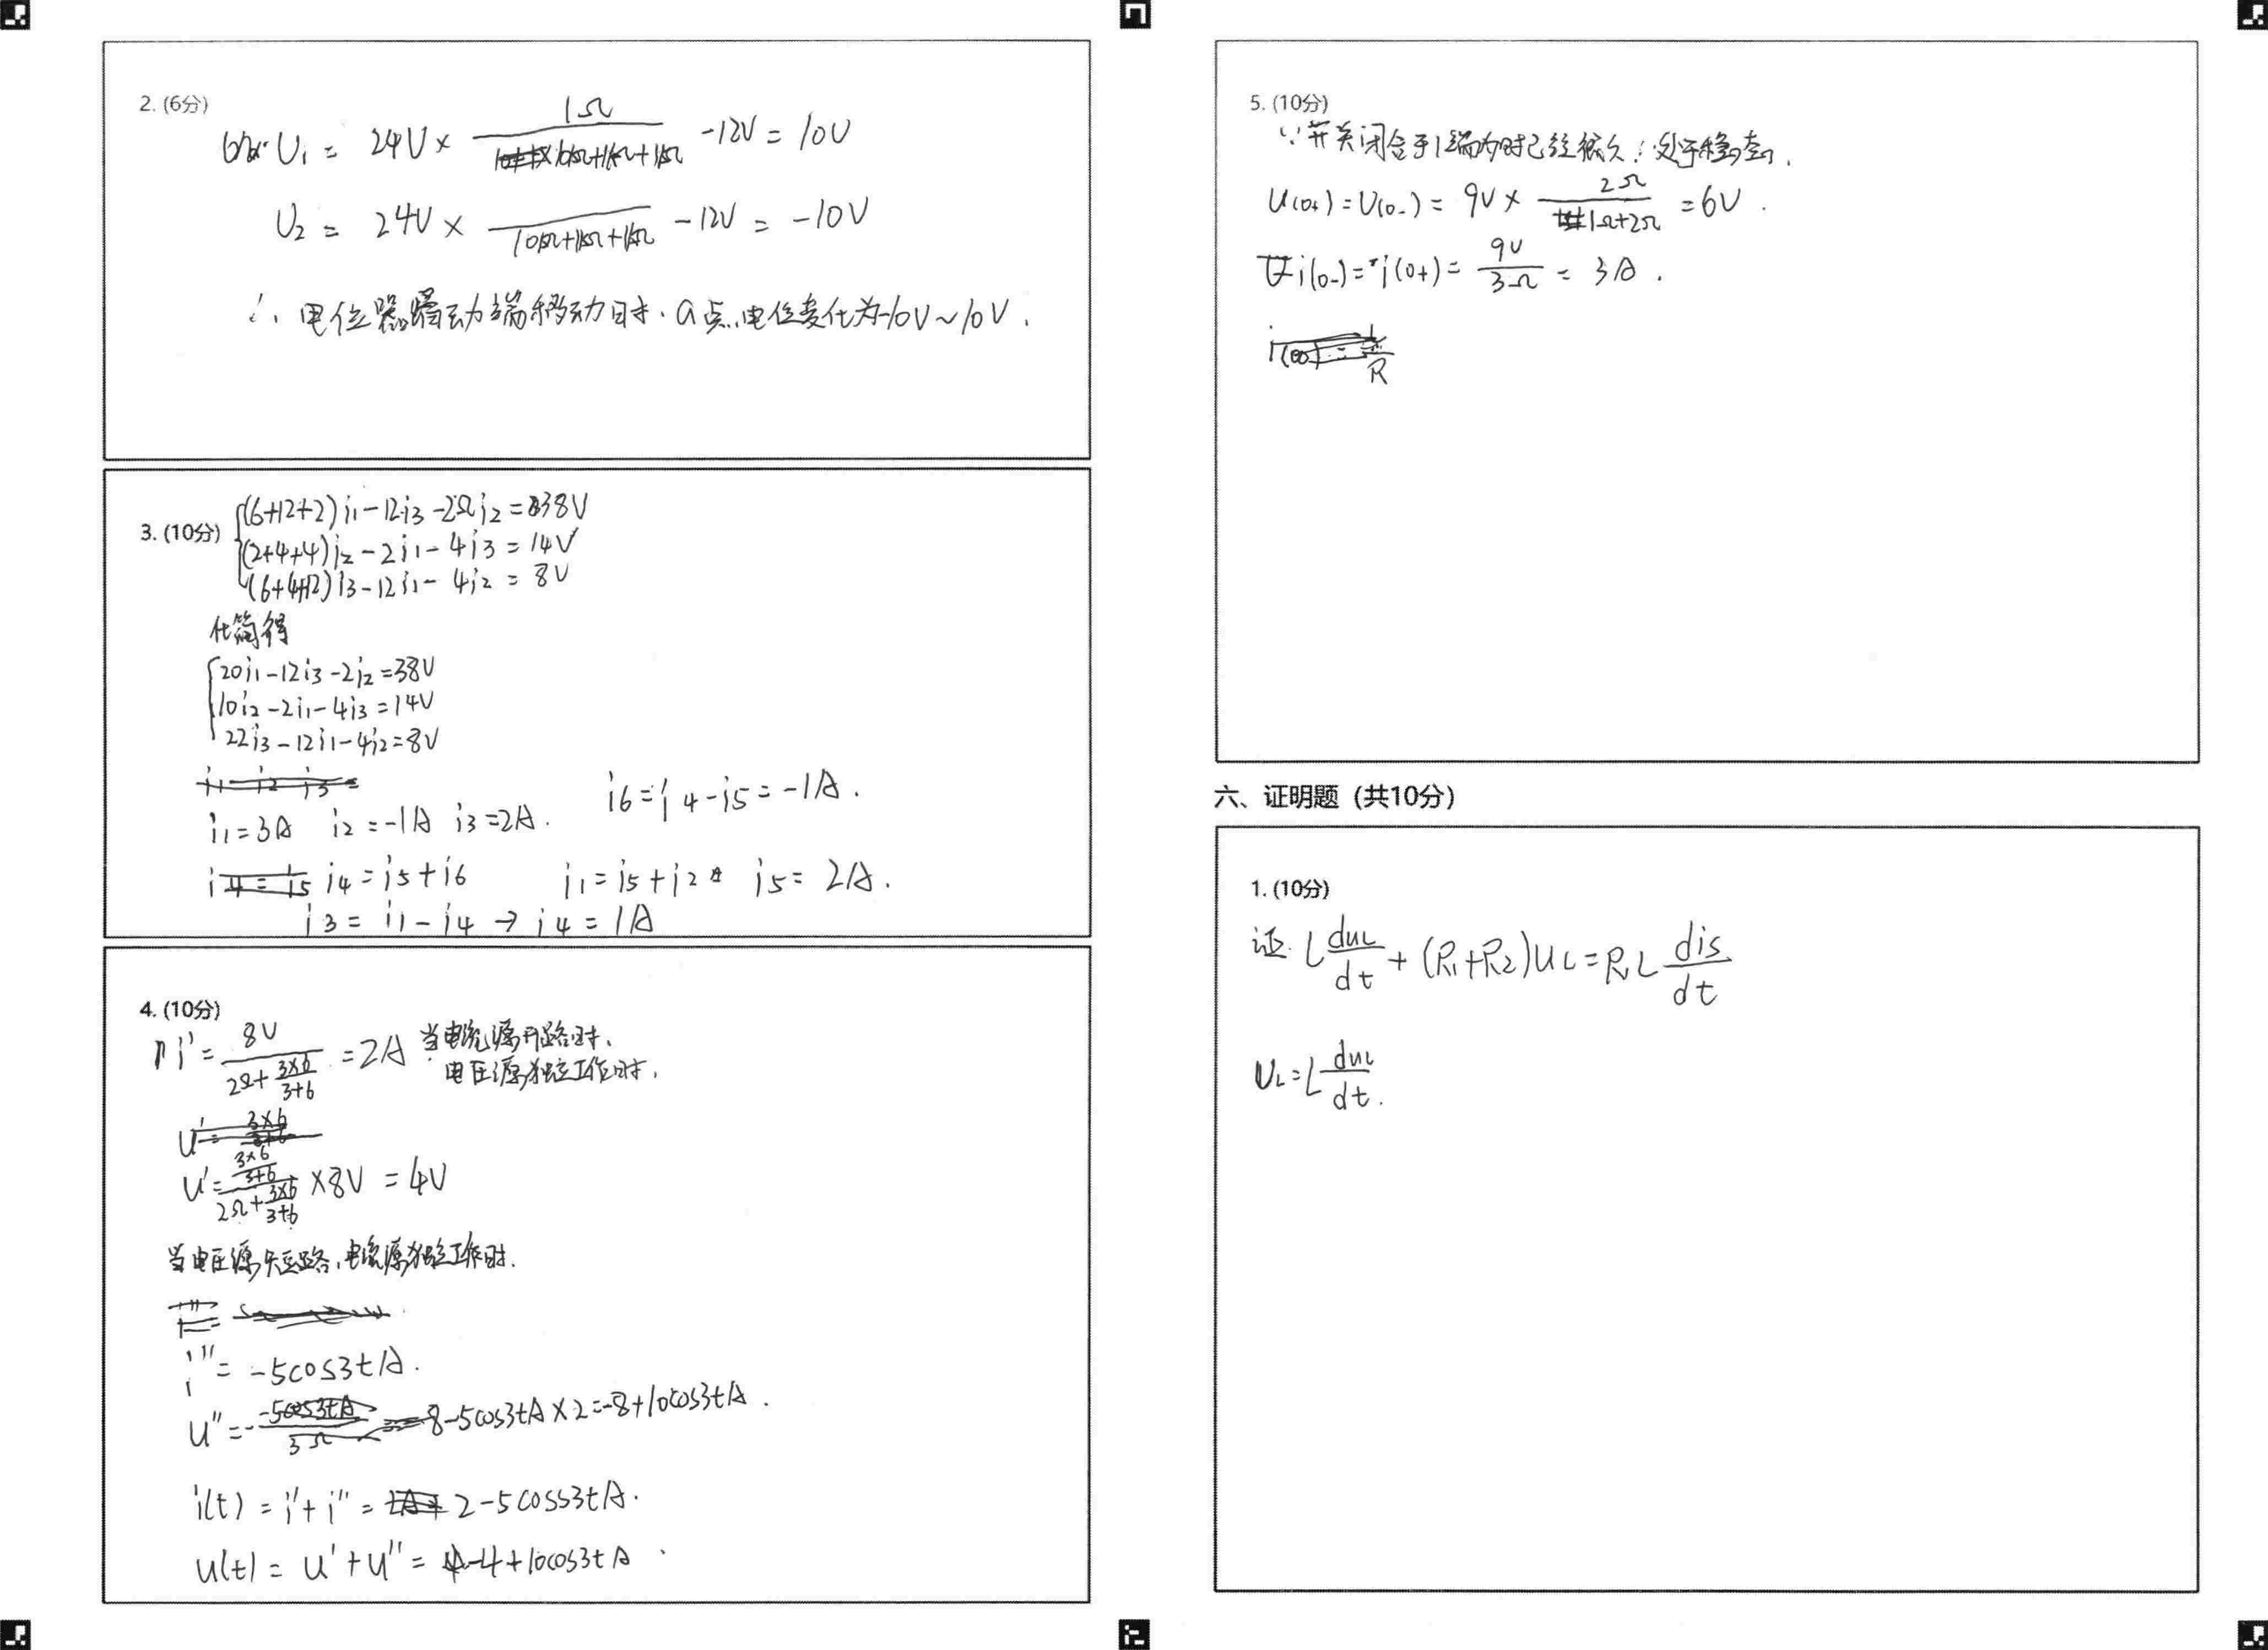 2. (6分)
U₁ = 24V × 1Ω / (10Ω+1Ω+1Ω) -12V = 10V
U₂ = 24V × / (10Ω+1Ω+1Ω) -12V = -10V
∴ 电位器滑动端移动时, a点电位变化为-10V~10V.
3. (10分)
(6+12+2)i₁-12i₃-2Ωi₂=38V
(2+4+4)i₂-2i₁-4i₃=14V
(6+4+12)i₃-12i₁-4i₂=8V
化简得
20i₁-12i₃-2i₂=38V
10i₂-2i₁-4i₃=14V
22i₃-12i₁-4i₂=8V
i₁=3A i₂=-1A i₃=2A. i6=i4-i5=-1A.
i4=i5+i6 i₁=i5+i2 i5=2A.
i3=i1-i4→i4=1A
4. (10分)
i'= 8V / (2Ω+ 3×6/3+6) =2A 当电流源开路时,
电压源独立工作时,
u'= (3×6/3+6) / (2Ω+ 3×6/3+6) ×8V =4V
当电压源短路,电流源独立工作时.
i''= -5cos3tA.
u''= 8-5cos3tA×2=-8+10cos3tA.
i(t)=i'+i''= 2-5coss3tA.
u(t)=u'+u''= -4+10cos3tA
5. (10分)
∵开关闭合于1端时已经很久∴处于稳态.
U(0+)=U(0-)= 9V× 2Ω / (1Ω+2Ω) =6V.
i(0-)=i(0+)= 9V / 3Ω = 3A.
六、证明题 (共10分)
1. (10分)
证. L duL/dt + (R₁+R₂)uL=R₁L dis/dt
UL=L duL/dt.